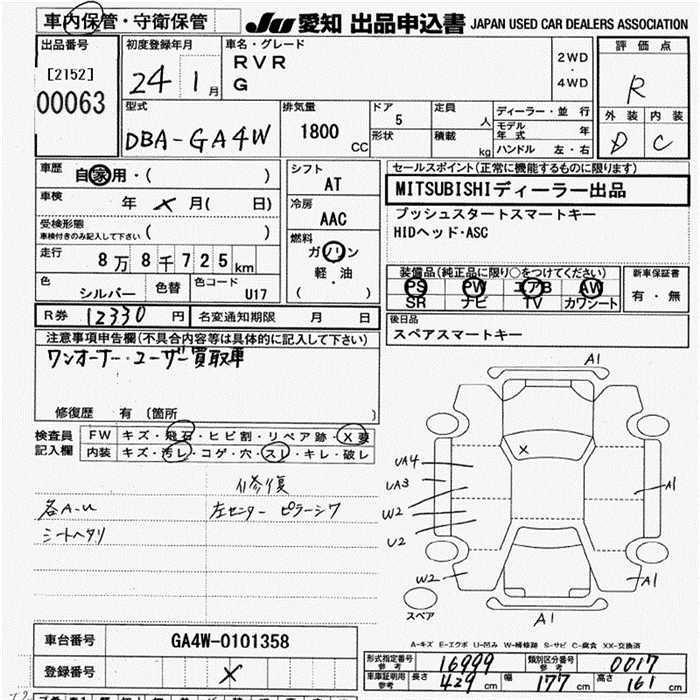 車内保管・守衛保管
JU 愛知 出品申込書 JAPAN USED CAR DEALERS ASSOCIATION
出品番号
[2152]
00063
初度登録年月
24 1月
車名・グレード
RVR
G
2WD
・
4WD
評価点
R
外装 内装
D C
型式
DBA-GA4W
排気量
1800
CC
ドア
5
形状
定員
人
積載
kg
ディーラー・並行
モデル年式 年
ハンドル 左・右
車歴
自家用・( )
車検
年 × 月( 日)
受検形態
車検付きのみ記入して下さい ( )
走行
8万8千725km
色
シルバー
色替
色コード
U17
シフト
AT
冷房
AAC
燃料
ガソリン
軽・油
( )
セールスポイント(正常に機能するものに限ります)
MITSUBISHIディーラー出品
プッシュスタートスマートキー
HIDヘッド・ASC
装備品(純正品に限り○をつけてください)
PS PW エアB AW
SR ナビ TV カワシート
新車保証書
有・無
後日品
スペアスマートキー
R券 12330 円
名変通知期限 月 日
注意事項申告欄(不具合内容等は具体的に記入して下さい)
ワンオーナー・ユーザー買取車
修復歴 有 (箇所 )
検査員
記入欄
FW キズ・飛石・ヒビ割・リペア跡・X要
内装 キズ・汚レ・コゲ・穴・スレ・キレ・破レ
修復
各A-U
左センターピラーシワ
シートヘタリ
A1
×
UA4
UA3
W2
U2
W2
A1
A1
A1
スペア
A-キズ E-エクボ U-凹み W-補修跡 S-サビ C-腐食 XX-交換済
車台番号 GA4W-0101358
登録番号 ×
形式指定番号
参考
16999
類別区分番号
参考
0017
車庫証明用
参考
長さ 429 cm 幅 177 cm 高さ 161 cm